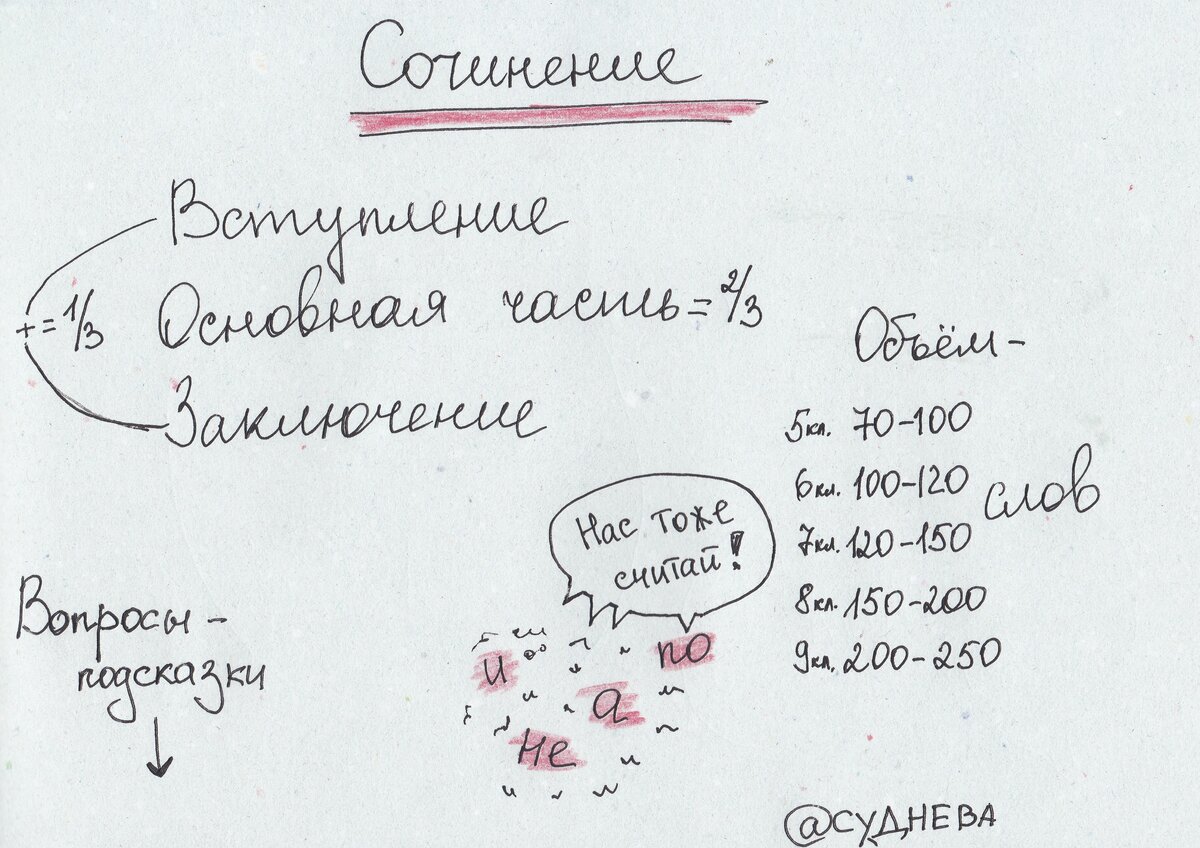 Сочинение
Вступление
+ = 1/3 Основная часть = 2/3
Заключение
Объём -
5кл. 70-100
6кл. 100-120 слов
7кл. 120-150
8кл. 150-200
9кл. 200-250
Нас тоже
считай!
и
по
а
не
Вопросы -
подсказки
@СУДНЕВА